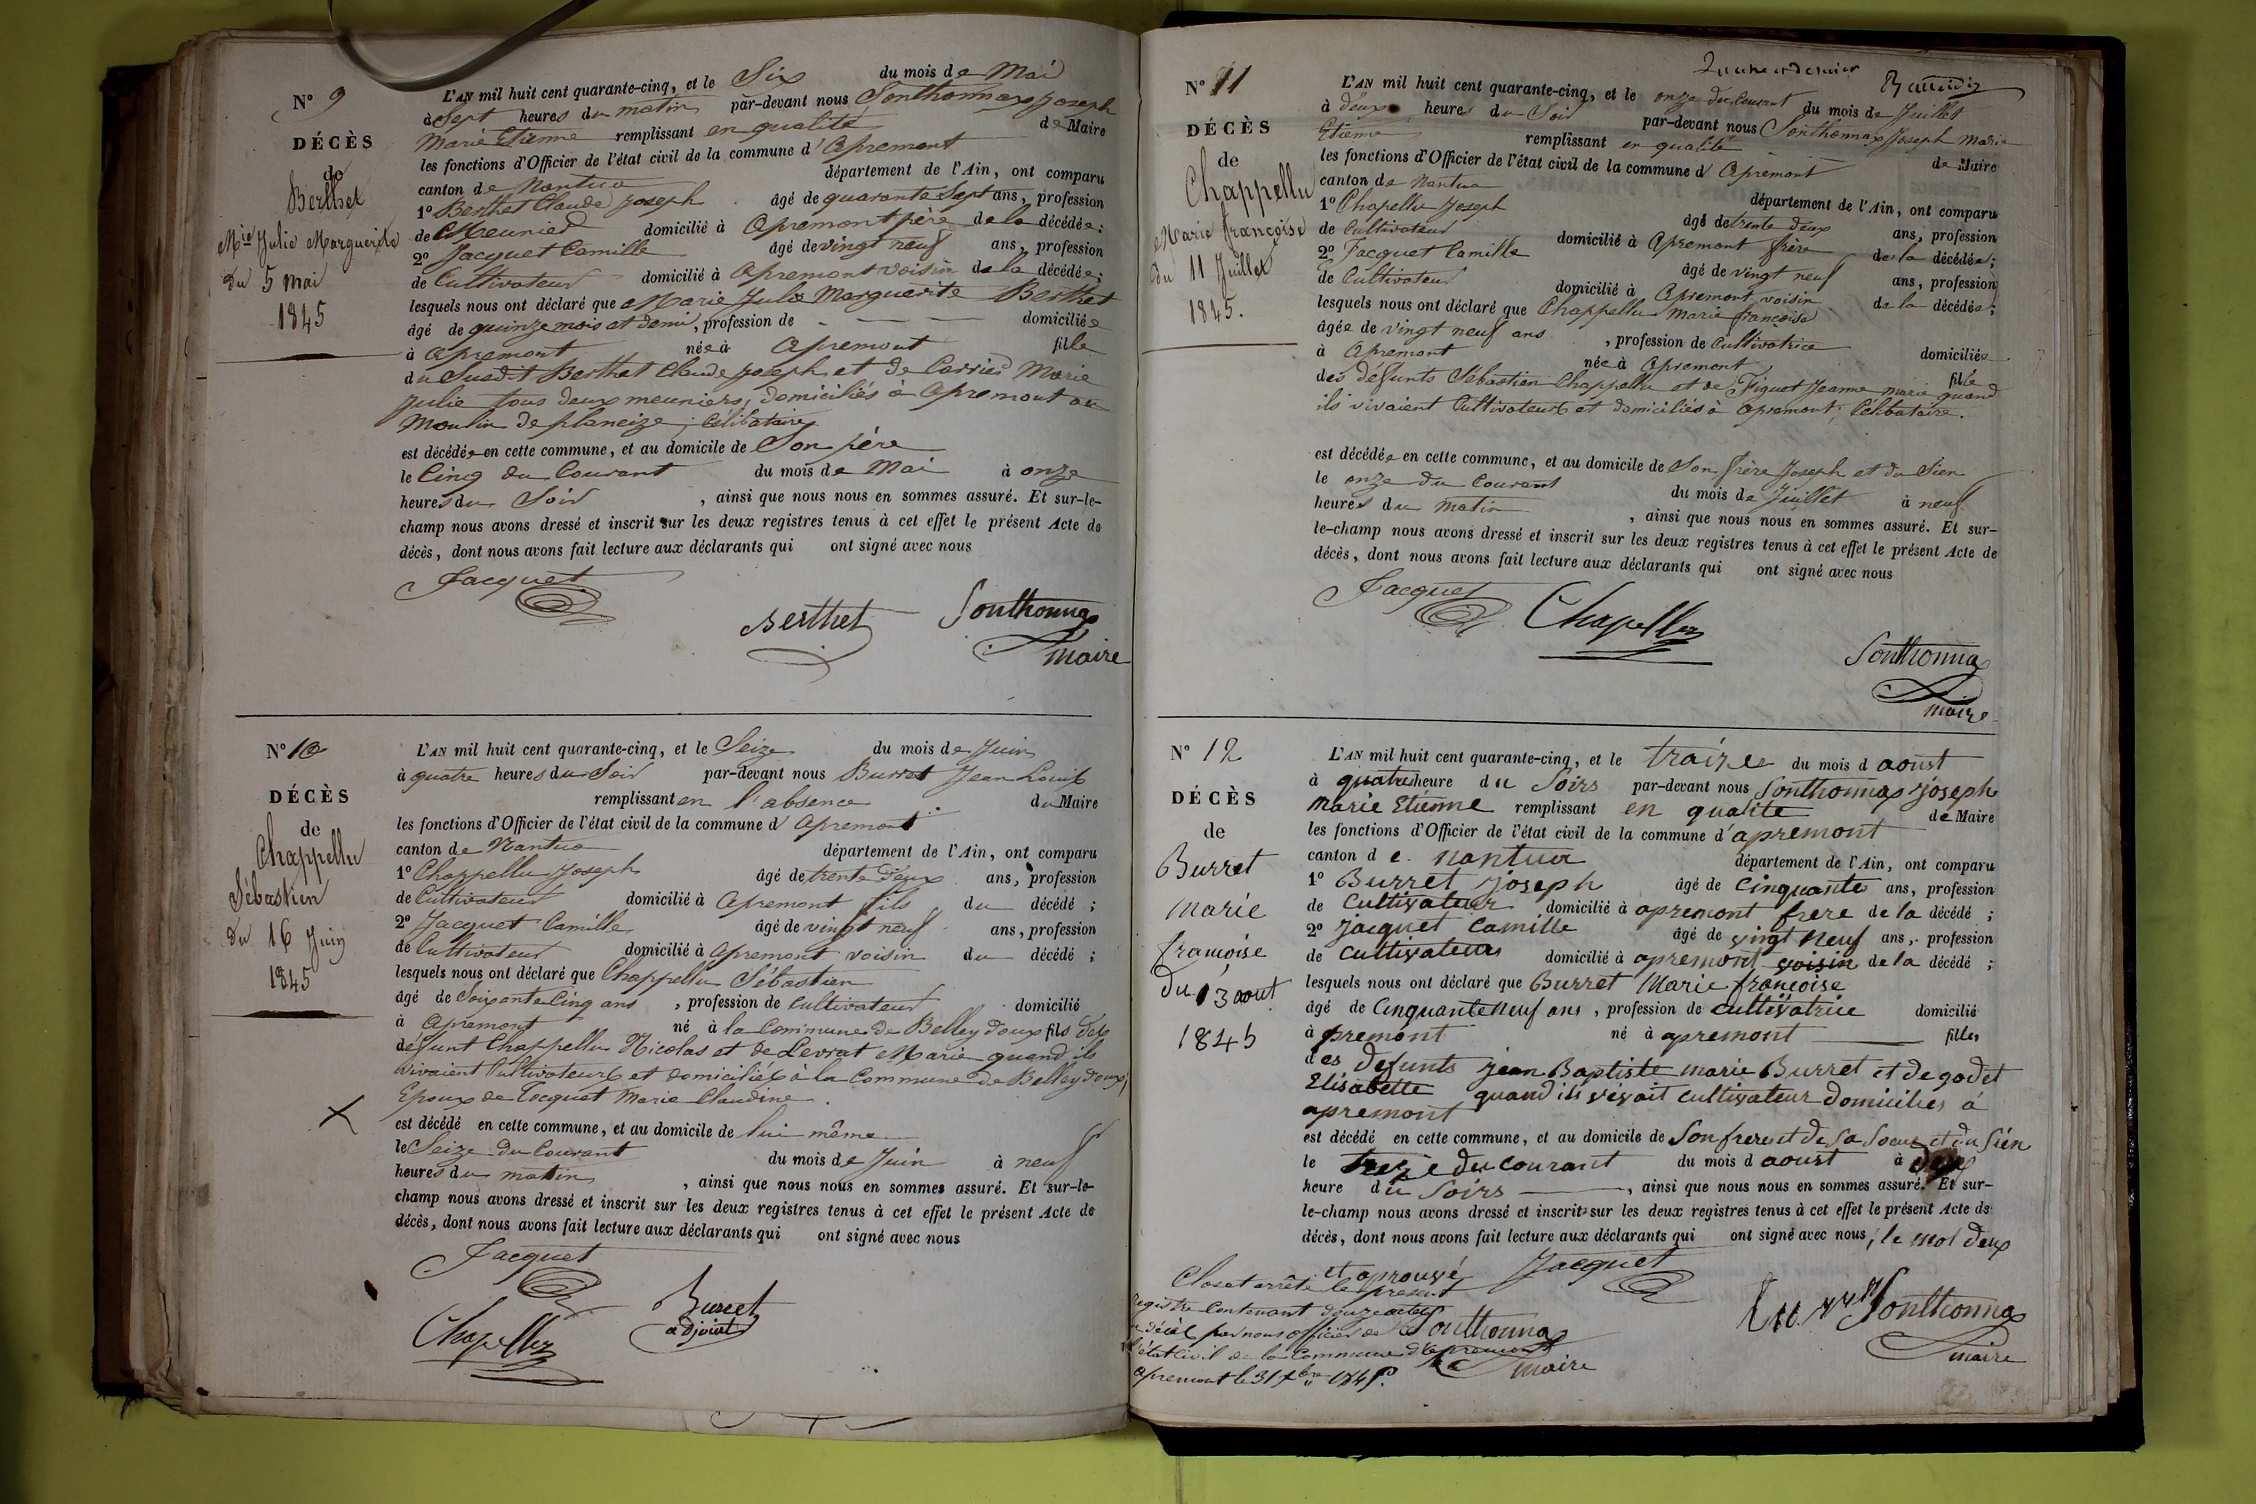 N° 9
DÉCÈS
de
Berthet
Mie Julie Marguerite
du 5 mai
1845
L'AN mil huit cent quarante-cinq, et le Six du mois de Mai
à Sept heures du matin par-devant nous Sonthonnax Joseph
Marie Etienne remplissant en qualité de Maire
les fonctions d'Officier de l'état civil de la commune d'Apremont
canton de Nantua département de l'Ain, ont comparu
1° Berthet Claude Joseph âgé de quarante Sept ans, profession
de Meunier domicilié à Apremont père de la décédée;
2° Jacquet Camille âgé de vingt neuf ans, profession
de Cultivateur domicilié à Apremont voisin de la décédée;
lesquels nous ont déclaré que Marie Julie Marguerite Berthet
âgé de quinze mois et demi, profession de — — — domiciliée
à Apremont née à Apremont fille
du Susdit Berthet Claude Joseph et de Carrier Marie
Julie tous deux meuniers, domiciliés à Apremont au
Moulin de planeize; Célibataire
est décédée en cette commune, et au domicile de Son père
le Cinq du Courant du mois de Mai à onze
heures du Soir, ainsi que nous nous en sommes assuré. Et sur-le-
champ nous avons dressé et inscrit sur les deux registres tenus à cet effet le présent Acte de
décès, dont nous avons fait lecture aux déclarants qui ont signé avec nous
Jacquet
Berthet
Sonthonnax
maire
N° 10
DÉCÈS
de
Chappellu
Sébastien
du 16 Juin
1845
L'AN mil huit cent quarante-cinq, et le Seize du mois de Juin
à quatre heures du Soir par-devant nous Burret Jean Louis
remplissant en l'absence du Maire
les fonctions d'Officier de l'état civil de la commune d'Apremont
canton de Nantua département de l'Ain, ont comparu
1° Chappellu Joseph âgé de trente deux ans, profession
de Cultivateur domicilié à Apremont fils du décédé;
2° Jacquet Camille âgé de vingt neuf ans, profession
de Cultivateur domicilié à Apremont voisin du décédé;
lesquels nous ont déclaré que Chappellu Sébastien
âgé de Soixante Cinq ans, profession de Cultivateur domicilié
à Apremont né à la Commune de Belleydoux fils des
défunt Chappellu Nicolas et de Levrat Marie quand ils
vivaient Cultivateurs et domiciliés à la Commune de Belleydoux,
Epoux de Tocquet Marie Claudine.
est décédé en cette commune, et au domicile de lui même
le Seize du Courant du mois de Juin à neuf
heures du matin, ainsi que nous nous en sommes assuré. Et sur-le-
champ nous avons dressé et inscrit sur les deux registres tenus à cet effet le présent Acte de
décès, dont nous avons fait lecture aux déclarants qui ont signé avec nous
Jacquet
Chapellu
Burret
adjoint
N° 11
DÉCÈS
de
Chappellu
Marie françoise
du 11 Juillet
1845.
L'AN mil huit cent quarante-cinq, et le onze du Courant du mois de Juillet
à deux heures du Soir par-devant nous Sonthonnax Joseph Marie
Etienne remplissant en qualité de Maire
les fonctions d'Officier de l'état civil de la commune d'Apremont
canton de Nantua département de l'Ain, ont comparu
1° Chapellu Joseph âgé de trente deux ans, profession
de Cultivateur domicilié à Apremont frère de la décédée;
2° Jacquet Camille âgé de vingt neuf ans, profession
de Cultivateur domicilié à Apremont voisin de la décédée;
lesquels nous ont déclaré que Chappellu Marie françoise
âgée de vingt neuf ans, profession de Cultivatrice domiciliée
à Apremont née à Apremont fille
des défunts Sébastien Chappellu et de Figuet Jeanne marie quand
ils vivaient Cultivateurs et domiciliés à Apremont; Célibataire.
est décédée en cette commune, et au domicile de Son frère Joseph et du Sien
le onze du Courant du mois de Juillet à neuf
heures du matin, ainsi que nous nous en sommes assuré. Et sur-
le-champ nous avons dressé et inscrit sur les deux registres tenus à cet effet le présent Acte de
décès, dont nous avons fait lecture aux déclarants qui ont signé avec nous
Jacquet
Chapellu
Sonthonnax
maire
N° 12
DÉCÈS
de
Burret
Marie
francoise
du 13 aout
1845
L'AN mil huit cent quarante-cinq, et le traize du mois d aoust
à quatre heure du Soirs par-devant nous Sonthonnax joseph
Marie Etienne remplissant en qualite de Maire
les fonctions d'Officier de l'état civil de la commune d'apremont
canton d e nantua département de l'Ain, ont comparu
1° Burret joseph âgé de Cinquante ans, profession
de Cultivateur domicilié à apremont frere de la décédé;
2° jacquet Camille âgé de vingt neuf ans, profession
de Cultivateur domicilié à apremont voisin de la décédé;
lesquels nous ont déclaré que Burret Marie francoise
âgé de Cinquante neuf ans, profession de cultivatrice domicilié
à apremont né à apremont fille
des defunts jean Baptiste marie Burret et de godet
Elisabette quand ils vivait cultivateur domicilies a
apremont
est décédé en cette commune, et au domicile de Son frere et de Sa Soeur et du Sien
le treize du courant du mois d aoust à deux
heure du Soirs, ainsi que nous nous en sommes assuré. Et sur-
le-champ nous avons dressé et inscrit sur les deux registres tenus à cet effet le présent Acte de
décès, dont nous avons fait lecture aux déclarants qui ont signé avec nous, le mot deux
et aprouvé
Jacquet
Burret
Sonthonnax
maire
Clos et arrêté le présent
registre Contenant douze actes
de décès par nous officier de
l'état Civil de la Commune d'Apremont
Apremont le 31 Xbre 1845.
Sonthonnax
maire